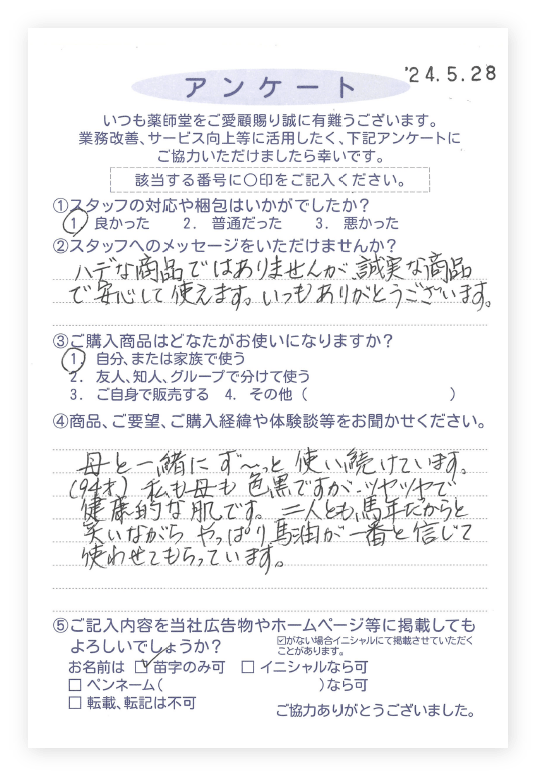 '24.5.28
アンケート
いつも薬師堂をご愛顧賜り誠に有難うございます。
業務改善、サービス向上等に活用したく、下記アンケートに
ご協力いただけましたら幸いです。
該当する番号に〇印をご記入ください。
①スタッフの対応や梱包はいかがでしたか?
1. 良かった 2. 普通だった 3. 悪かった
②スタッフへのメッセージをいただけませんか?
ハデな商品ではありませんが、誠実な商品
で安心して使えます。いつもありがとうございます。
③ご購入商品はどなたがお使いになりますか?
1. 自分、または家族で使う
2. 友人、知人、グループで分けて使う
3. ご自身で販売する 4. その他( )
④商品、ご要望、ご購入経緯や体験談等をお聞かせください。
母と一緒にず〜っと使い続けています。
(94才) 私も母も色黒ですが、ツヤツヤで
健康的な肌です。二人とも馬年だからと
笑いながらやっぱり馬油が一番と信じて
使わせてもらっています。
⑤ご記入内容を当社広告物やホームページ等に掲載しても
よろしいでしょうか?
☑がない場合イニシャルにて掲載させていただく
ことがあります。
お名前は ☑ 苗字のみ可 □ イニシャルなら可
□ ペンネーム( )なら可
□ 転載、転記は不可
ご協力ありがとうございました。